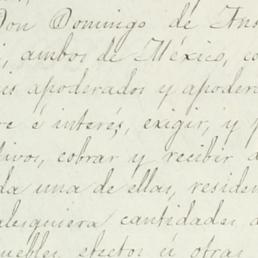 Don Domingo de Ans
, ambos de México, co
is apoderados y apodera
re é interés, exigir, y p
tivos, cobrar y recibir d
da una de ellas, residen
alesquiera cantidades d
uebles, efectos ú otras